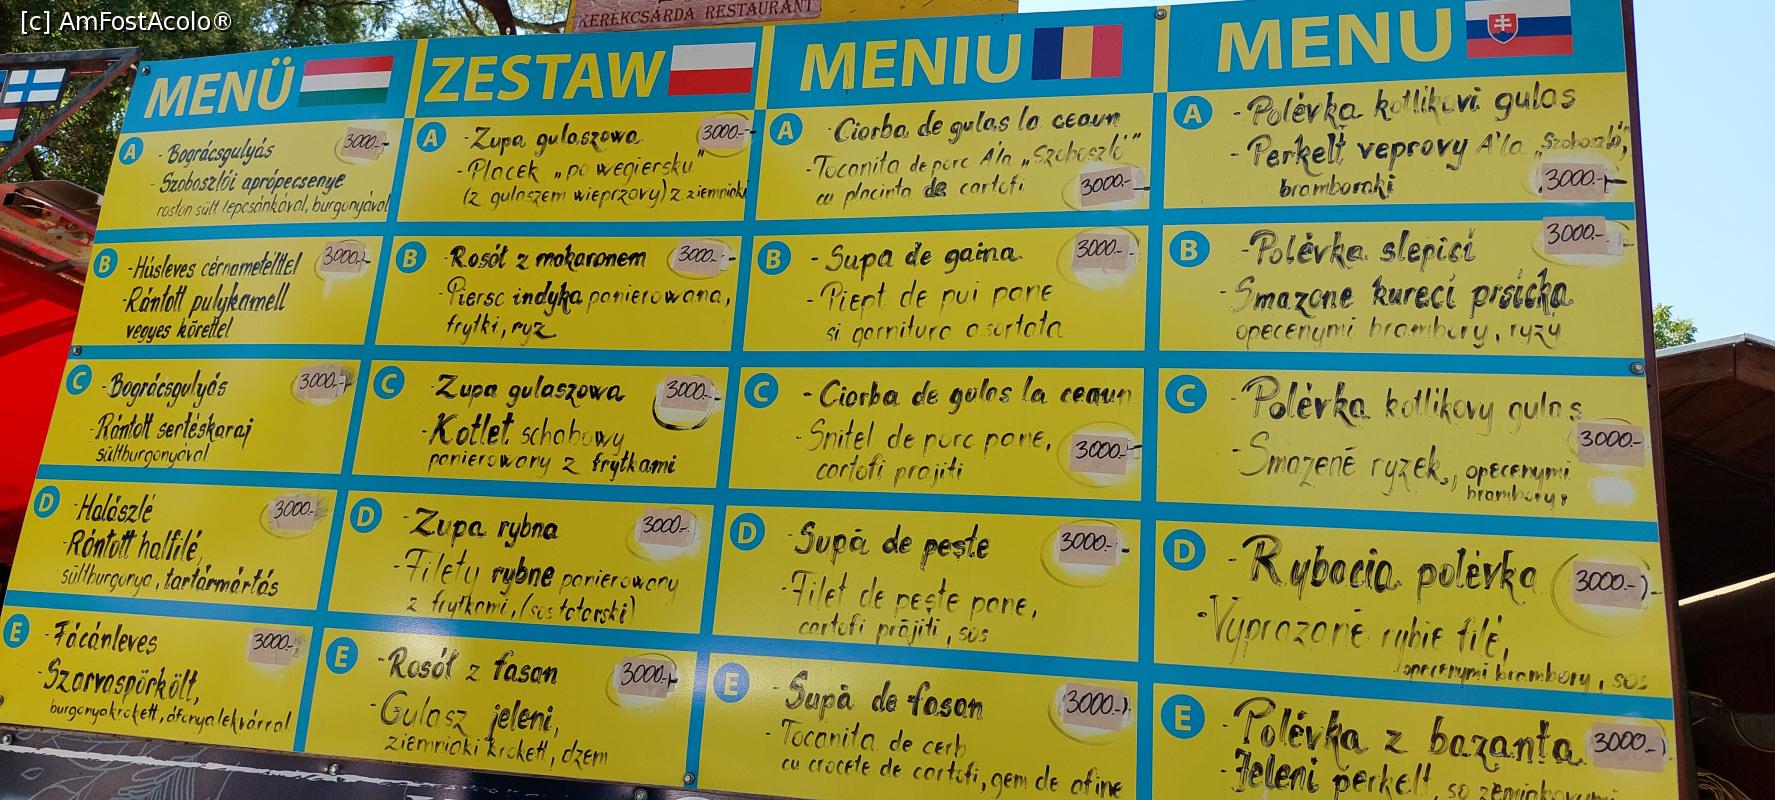 [c] AmFostAcolo®
KEREKCSÁRDA RESTAURANT
MENÜ
A
-Bográcsgulyás
3000.-
-Szoboszlói aprópecsenye
roston sült lepcsánkával, burgonyával
B
-Húsleves cérnametélttel
3000.-
-Rántott pulykamell
vegyes körettel
C
-Bográcsgulyás
3000.-
-Rántott sertéskaraj
sültburgonyával
D
-Halászlé
3000.-
-Rántott halfilé,
sültburgonya, tartármártás
E
-Fácánleves
3000.-
-Szarvaspörkölt,
burgonyakrokett, áfonyalekvárral
ZESTAW
A
-Zupa gulaszowa
3000.-
-Placek „po wegiersku"
(z gulaszem wieprzovy) z ziemniaki
B
-Rosół z makaronem
3000.-
-Piersc indyka panierowana,
frytki, ryz
C
-Zupa gulaszowa
3000.-
-Kotlet schabowy
panierowany z frytkami
D
-Zupa rybna
3000.-
-Filety rybne panierowany
z frytkami, (sos tatarski)
E
-Rosół z fasan
3000.-
-Gulasz jeleni,
ziemniaki krokett, dzem
MENIU
A
-Ciorba de gulas la ceaun
-Tocanita de porc A'la „Szoboszló"
cu placinta de cartofi
3000.-
B
-Supa de gaina
3000.-
-Piept de pui pane
si garnitura asortata
C
-Ciorba de gulas la ceaun
-Snitel de porc pane,
cartofi prajiti
3000.-
D
-Supă de pește
3000.-
-Filet de pește pane,
cartofi prăjiti, sos
E
-Supă de fasan
3000.-
-Tocanita de cerb
cu crocete de cartofi, gem de afine
MENU
A
-Polévka kotlikavi gulas
-Perkelt veprovy A'la „Szoboszló"
bramboraki
3000.-
B
-Polévka slepici
3000.-
-Smazone kureci prsicka
opecenymi brambory, ryzy
C
-Polévka kotlikovy gulas
3000.-
-Smazené ryzek, opecenymi
brambory,
D
-Rybacia polévka
3000.-
-Vyprazané rybie filé,
opecenymi brambory, sos
E
-Polévka z bazanta
3000.-
-Jeleni perkelt, so zemiakovymi